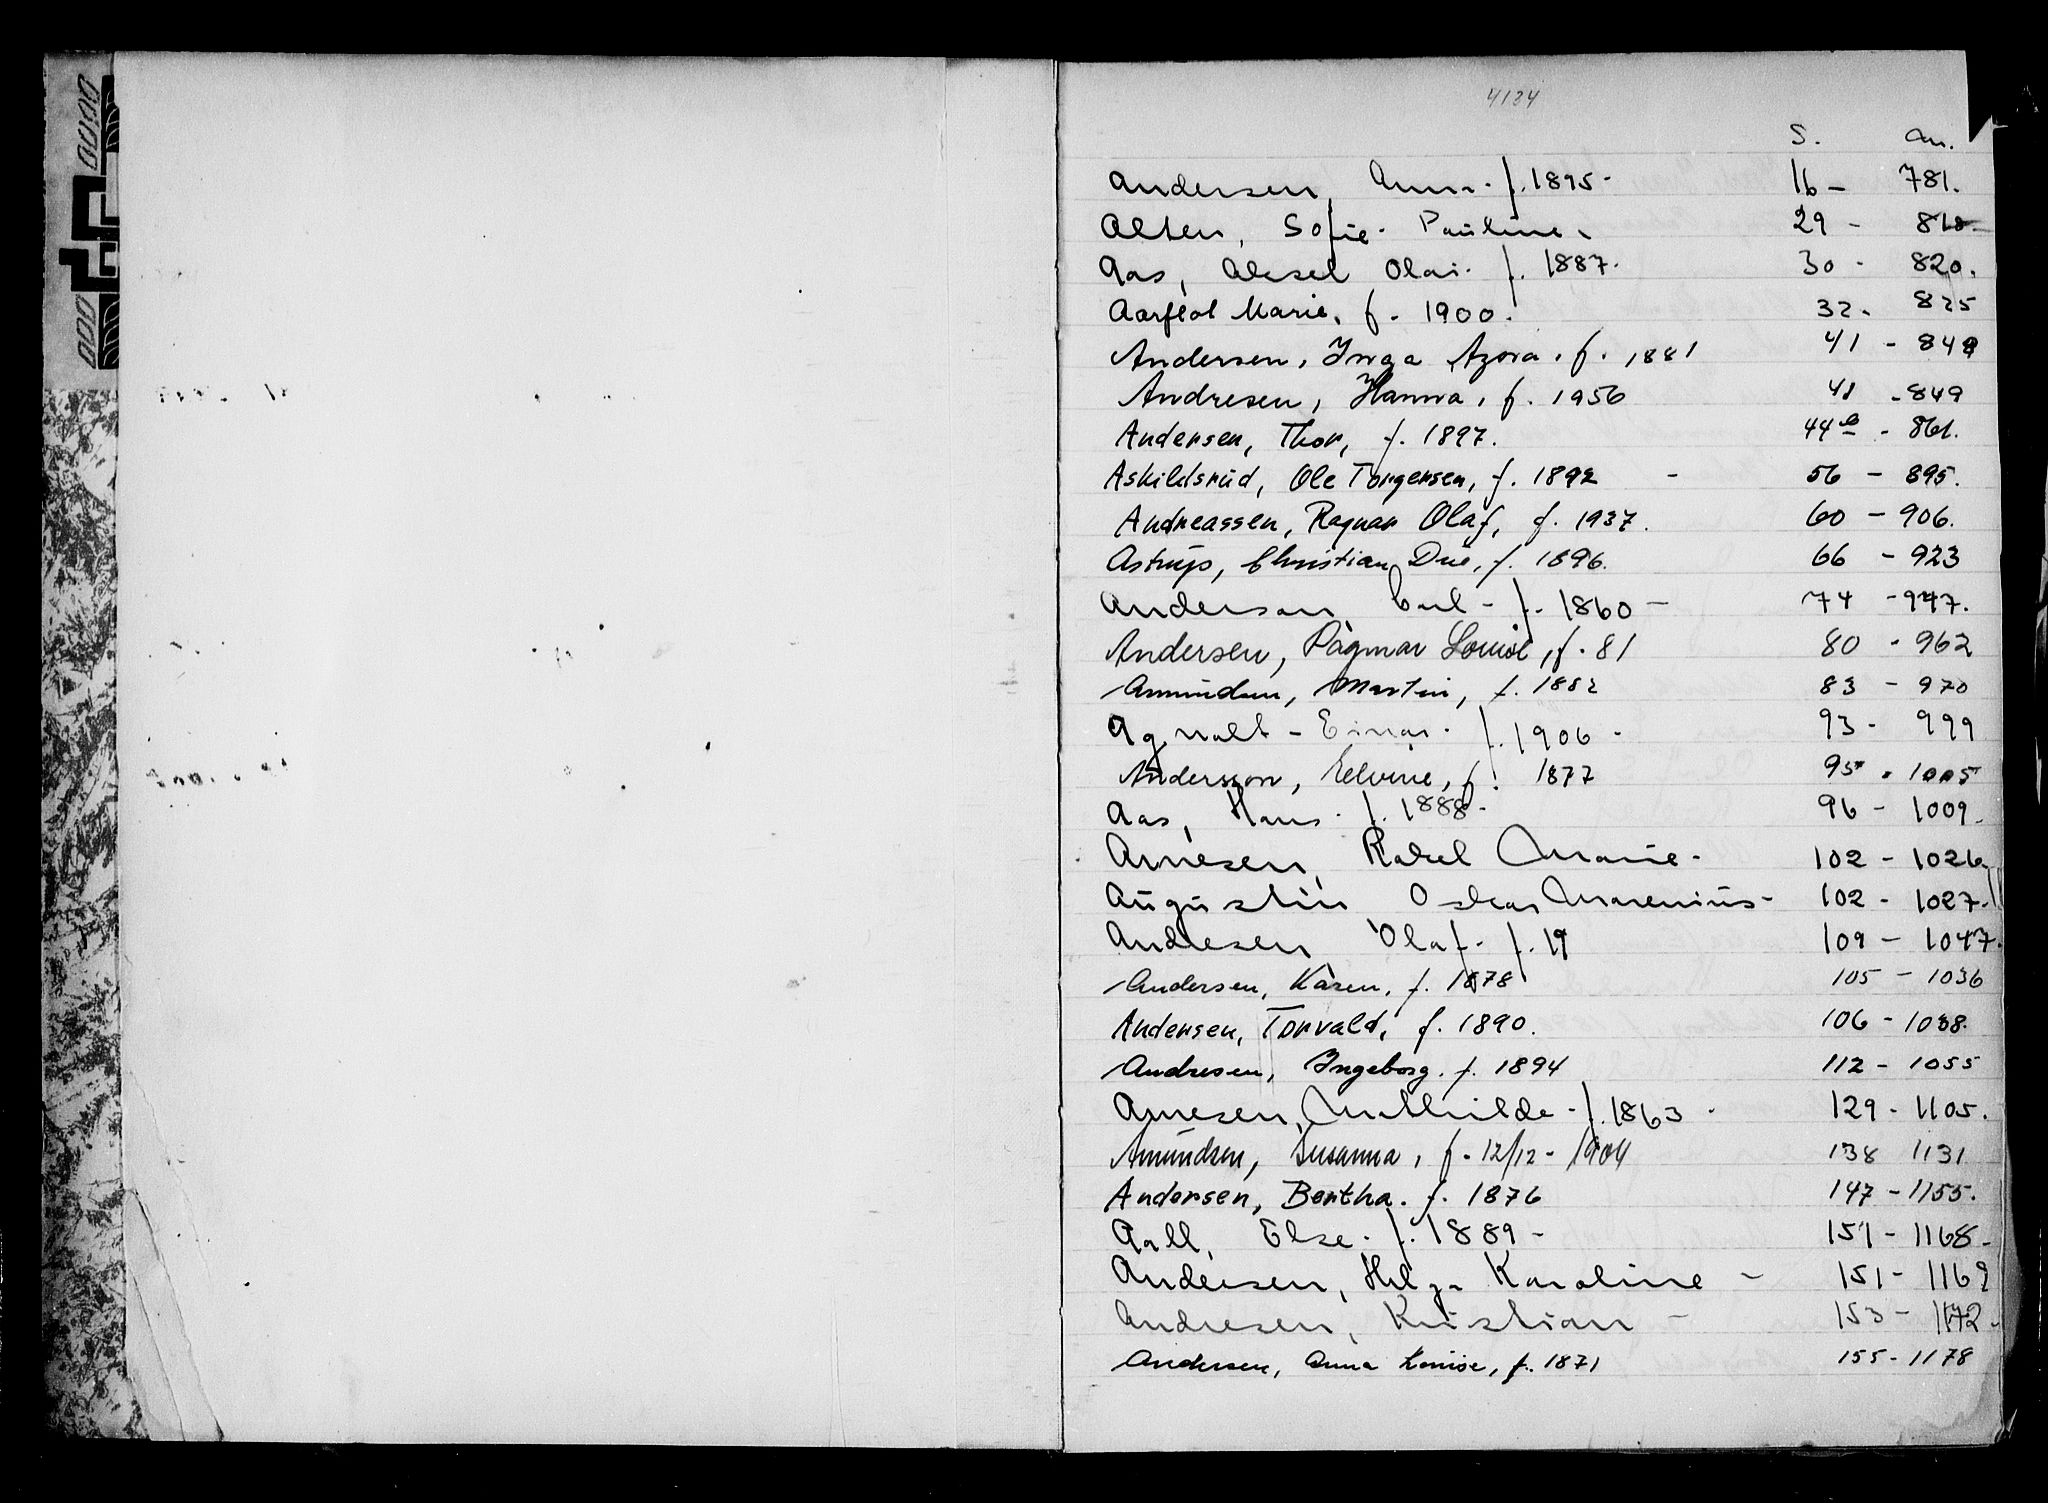 4134
S. An.
Andersen, Anna. f. 1895. 16 - 781.
Alten, Sofie. Pauline. 29 - 818.
Aas, Aksel Olai. f. 1887. 30 - 820.
Aarflot Marie, f. 1900. 32. 825
Andersen, Inga Azora. f. 1881 41 - 848
Andresen, Hanna, f. 1956 41 - 849
Andersen, Thor, f. 1897. 44 b - 861.
Askildsrud, Ole Torgersen, f. 1892 - 56 - 895.
Andreassen, Ragnar Olaf, f. 1937. 60 - 906.
Astrup, Christian Due, f. 1896. 66 - 923
Anderson Carl - f. 1860 - 74 - 947.
Andersen, Dagmar Louise, f. 81 80 - 962
Amundsen, Martin, f. 1882 83 - 970
Agnalt - Einar. f. 1906 - 93 - 999
Andersson, Elvine, f. 1877 95 - 1005
Aas, Hans. f. 1888 - 96 - 1009.
Arnesen, Rakel Marie - 102 - 1026
Augustin Oskar Marenius - 102 - 1027.
Andresen Olaf. f. 19 109 - 1047.
Andersen, Karen, f. 1878 105 - 1036
Andersen, Torvald, f. 1890. 106 - 1038.
Andresen, Ingeborg. f. 1894 112 - 1055
Arnesen, Mathilde - f. 1863 - 129 - 1105.
Amundsen, Susanna, f. 12/12 - 1904 138 1131
Andersen, Bertha. f. 1876 147 - 1155.
Aall, Else. f. 1889 - 151 - 1168 -
Andersen, Helga Karoline - 151 - 1169
Andresen, Kristian - 153 - 1172 -
Andersen, Anna Louise, f. 1871 155 - 1178